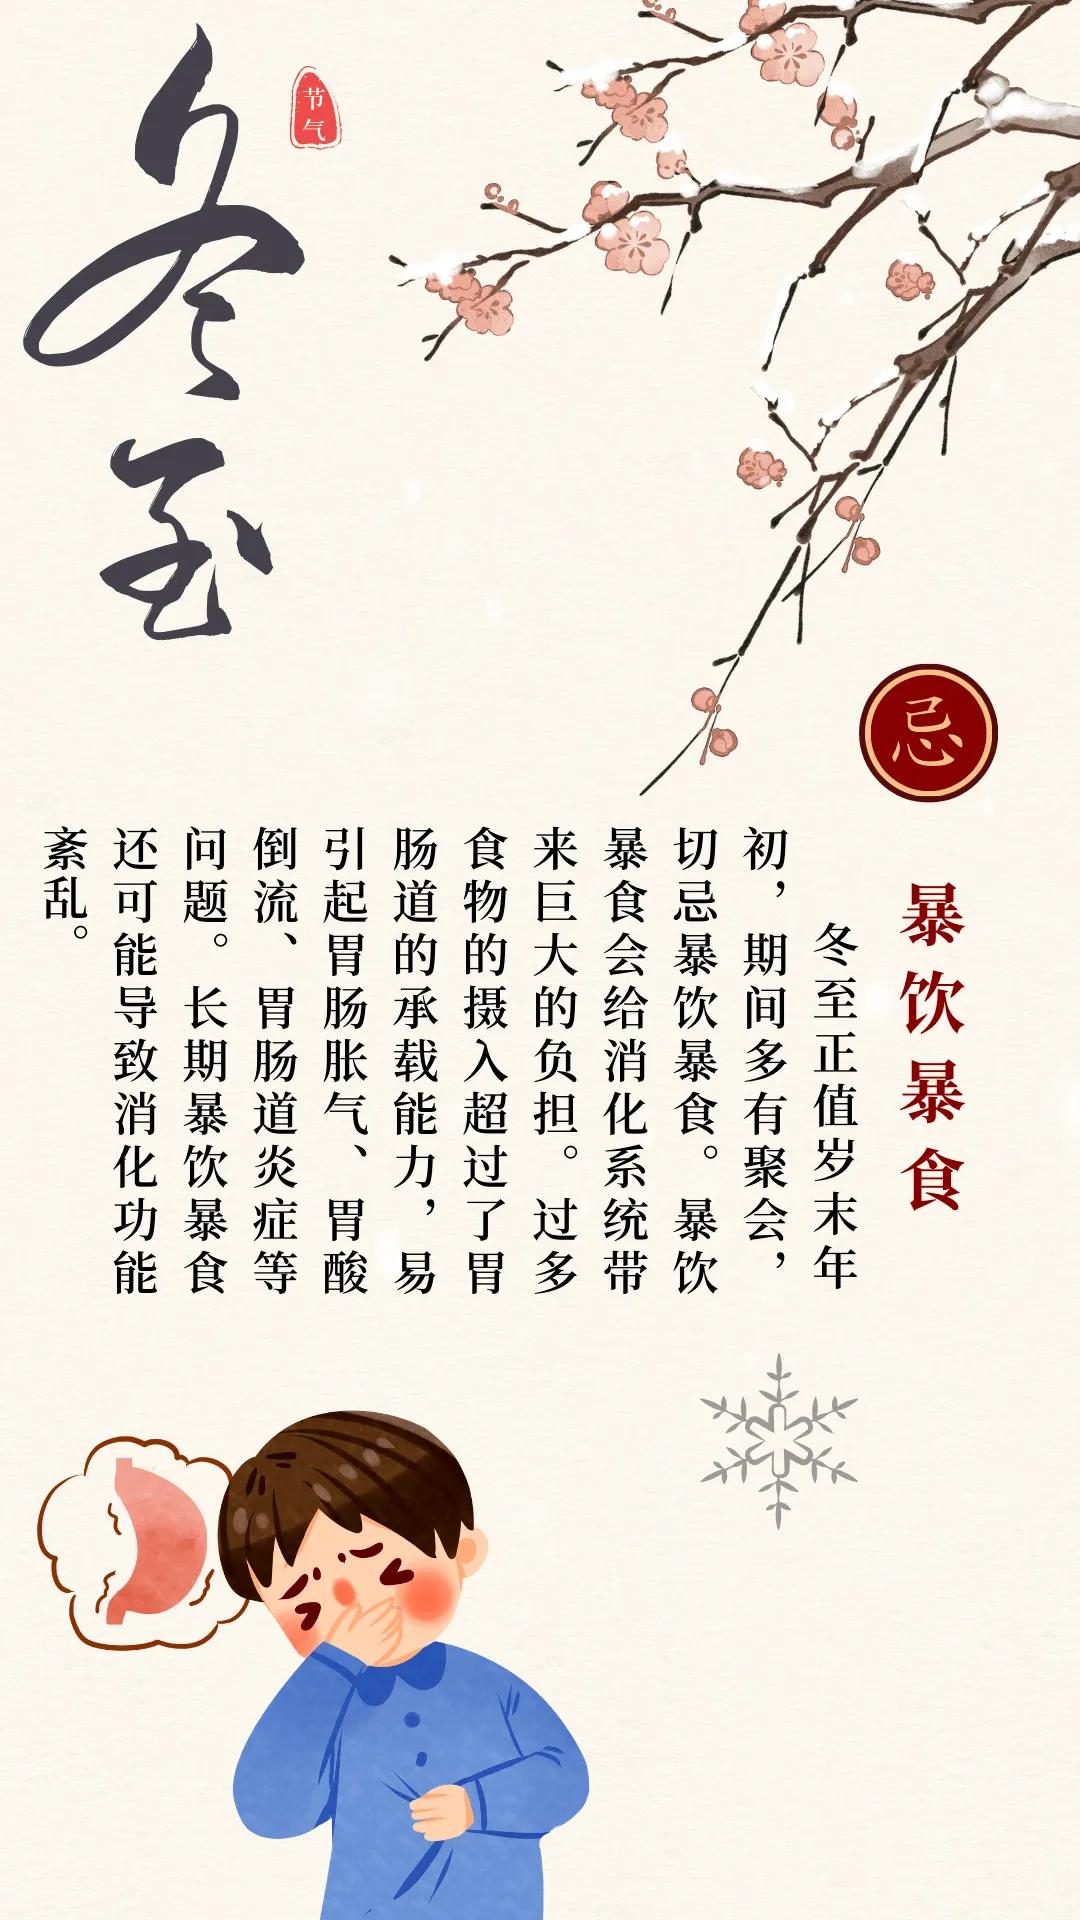 冬至
节气
忌
暴饮暴食
冬至正值岁末年
初，期间多有聚会，
切忌暴饮暴食。暴饮
暴食会给消化系统带
来巨大的负担。过多
食物的摄入超过了胃
肠道的承载能力，易
引起胃肠胀气、胃酸
倒流、胃肠道炎症等
问题。长期暴饮暴食
还可能导致消化功能
紊乱。